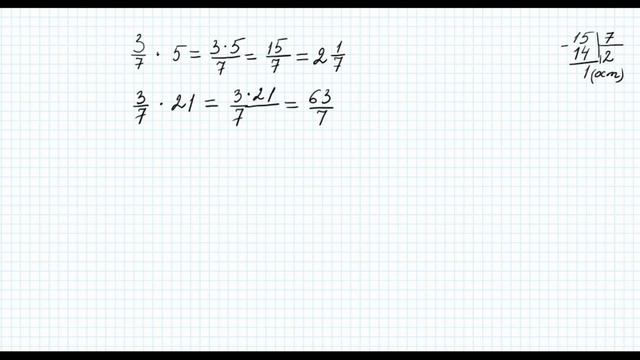 3/7 · 5 = 3·5/7 = 15/7 = 2 1/7
3/7 · 21 = 3·21/7 = 63/7
- 15 | 7
14 | 2
1 (ост)